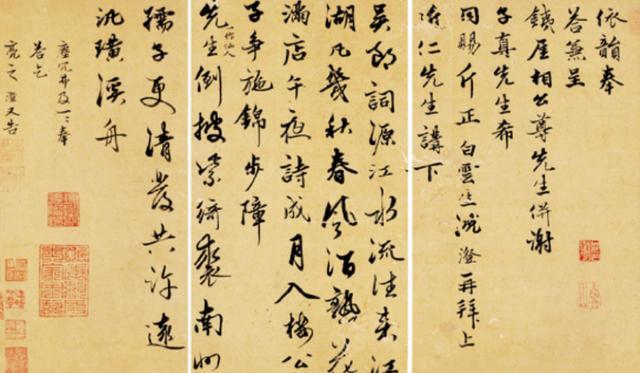 依韻奉
答兼呈
鐵厓相公尊先生併謝
子真先生希
同賜斤正白雲生澄再拜上
仁先生講下
吳郎詞源江水流往來江
湖凡幾秋春風酒熟花
滿店午夜詩成月入樓公
子爭施錦步障
先生倒披紫綺裘南州
仙人
孺子更清發共許遠
汎璜溪舟
奉
答
亮之澄又告